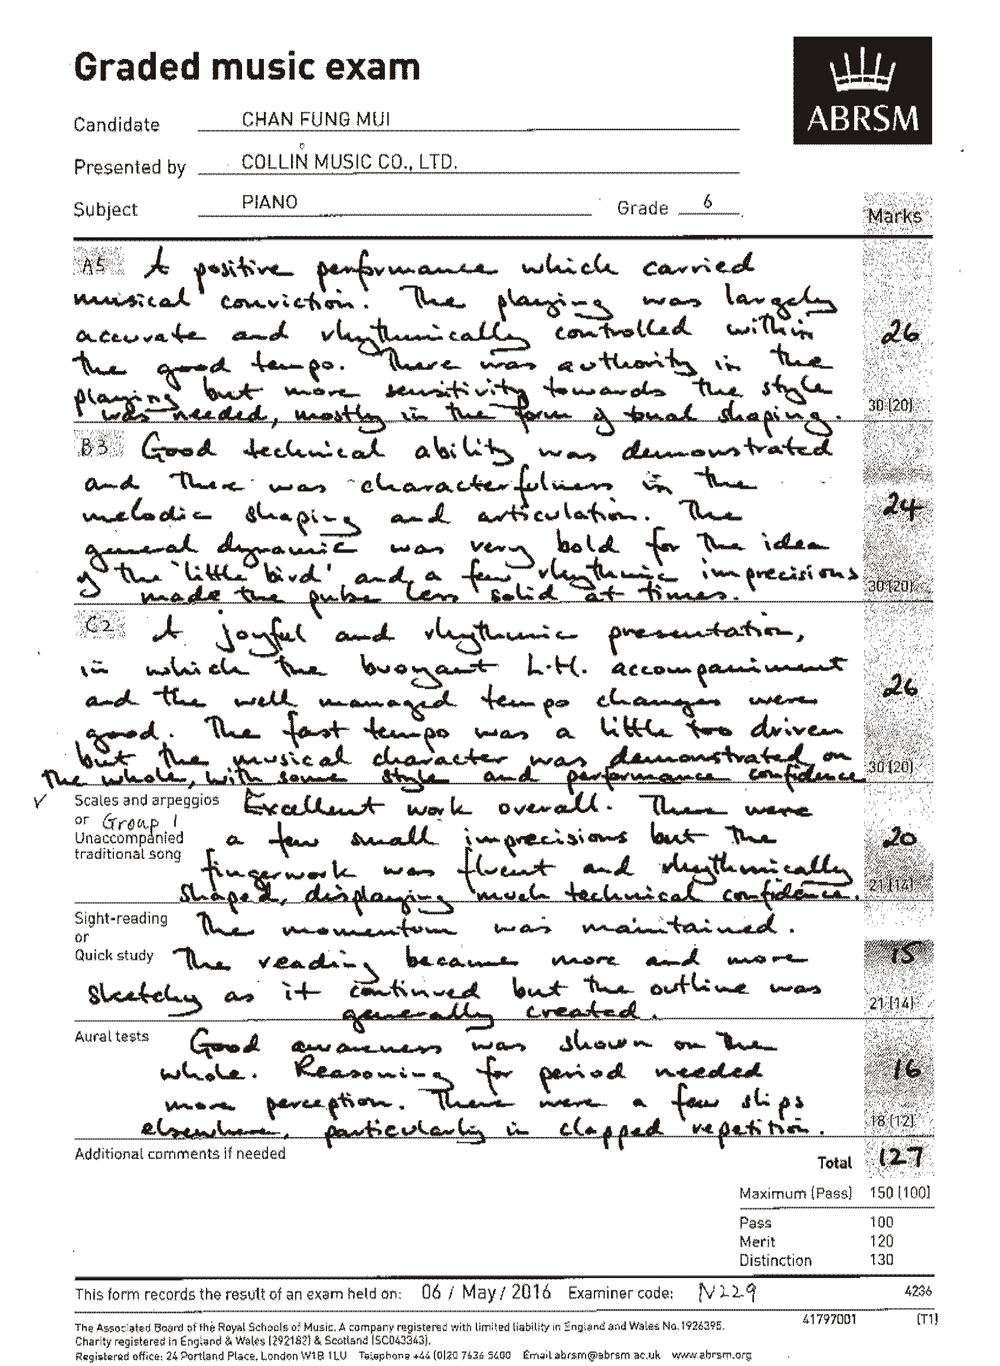 Graded music exam
ABRSM
Candidate CHAN FUNG MUI
Presented by COLLIN MUSIC CO., LTD.
Subject PIANO Grade 6
Marks
A5 A positive performance which carried
musical conviction. The playing was largely
accurate and rhythmically controlled within
26
the good tempo. There was authority in the
playing but more sensitivity towards the style
was needed, mostly in the form of tonal shaping.
30 (20)
B3 Good technical ability was demonstrated
and there was characterfulness in the
melodic shaping and articulation. The
24
general dynamic was very bold for the idea
of the 'little bird' and a few rhythmic imprecisions
made the pulse less solid at times.
30 (20)
C2 A joyful and rhythmic presentation,
in which the buoyant L.H. accompaniment
and the well managed tempo changes were
26
good. The fast tempo was a little too driven
but the musical character was demonstrated on
the whole, with some style and performance confidence
30 (20)
✓ Scales and arpeggios Excellent work overall. There were
or Group 1
Unaccompanied
traditional song
a few small imprecisions but the
20
fingerwork was fluent and rhythmically
shaped, displaying much technical confidence.
21 (14)
Sight-reading
or
Quick study
The momentum was maintained.
The reading became more and more
15
sketchy as it continued but the outline was
generally created.
21 (14)
Aural tests Good awareness was shown on the
whole. Reasoning for period needed
16
more perception. There were a few slips
elsewhere, particularly in clapped repetition.
18 (12)
Additional comments if needed
Total 127
Maximum (Pass) 150 (100)
Pass 100
Merit 120
Distinction 130
This form records the result of an exam held on: 06 / May / 2016 Examiner code: N229 4236
41797001 (T1)
The Associated Board of the Royal Schools of Music. A company registered with limited liability in England and Wales No. 1926395.
Charity registered in England & Wales (292182) & Scotland (SC043343).
Registered office: 24 Portland Place, London W1B 1LU Telephone +44 (0)20 7636 5400 Email abrsm@abrsm.ac.uk www.abrsm.org